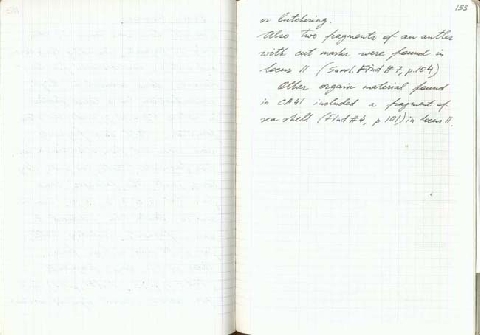 155
or butchering.
Also two fragments of an antler
with cut marks were found in
locus 11 (Small Find # 7, p.154)
Other organ material found
in CA41 included a fragment of
sea shell (Find #4, p 151) in locus 11.